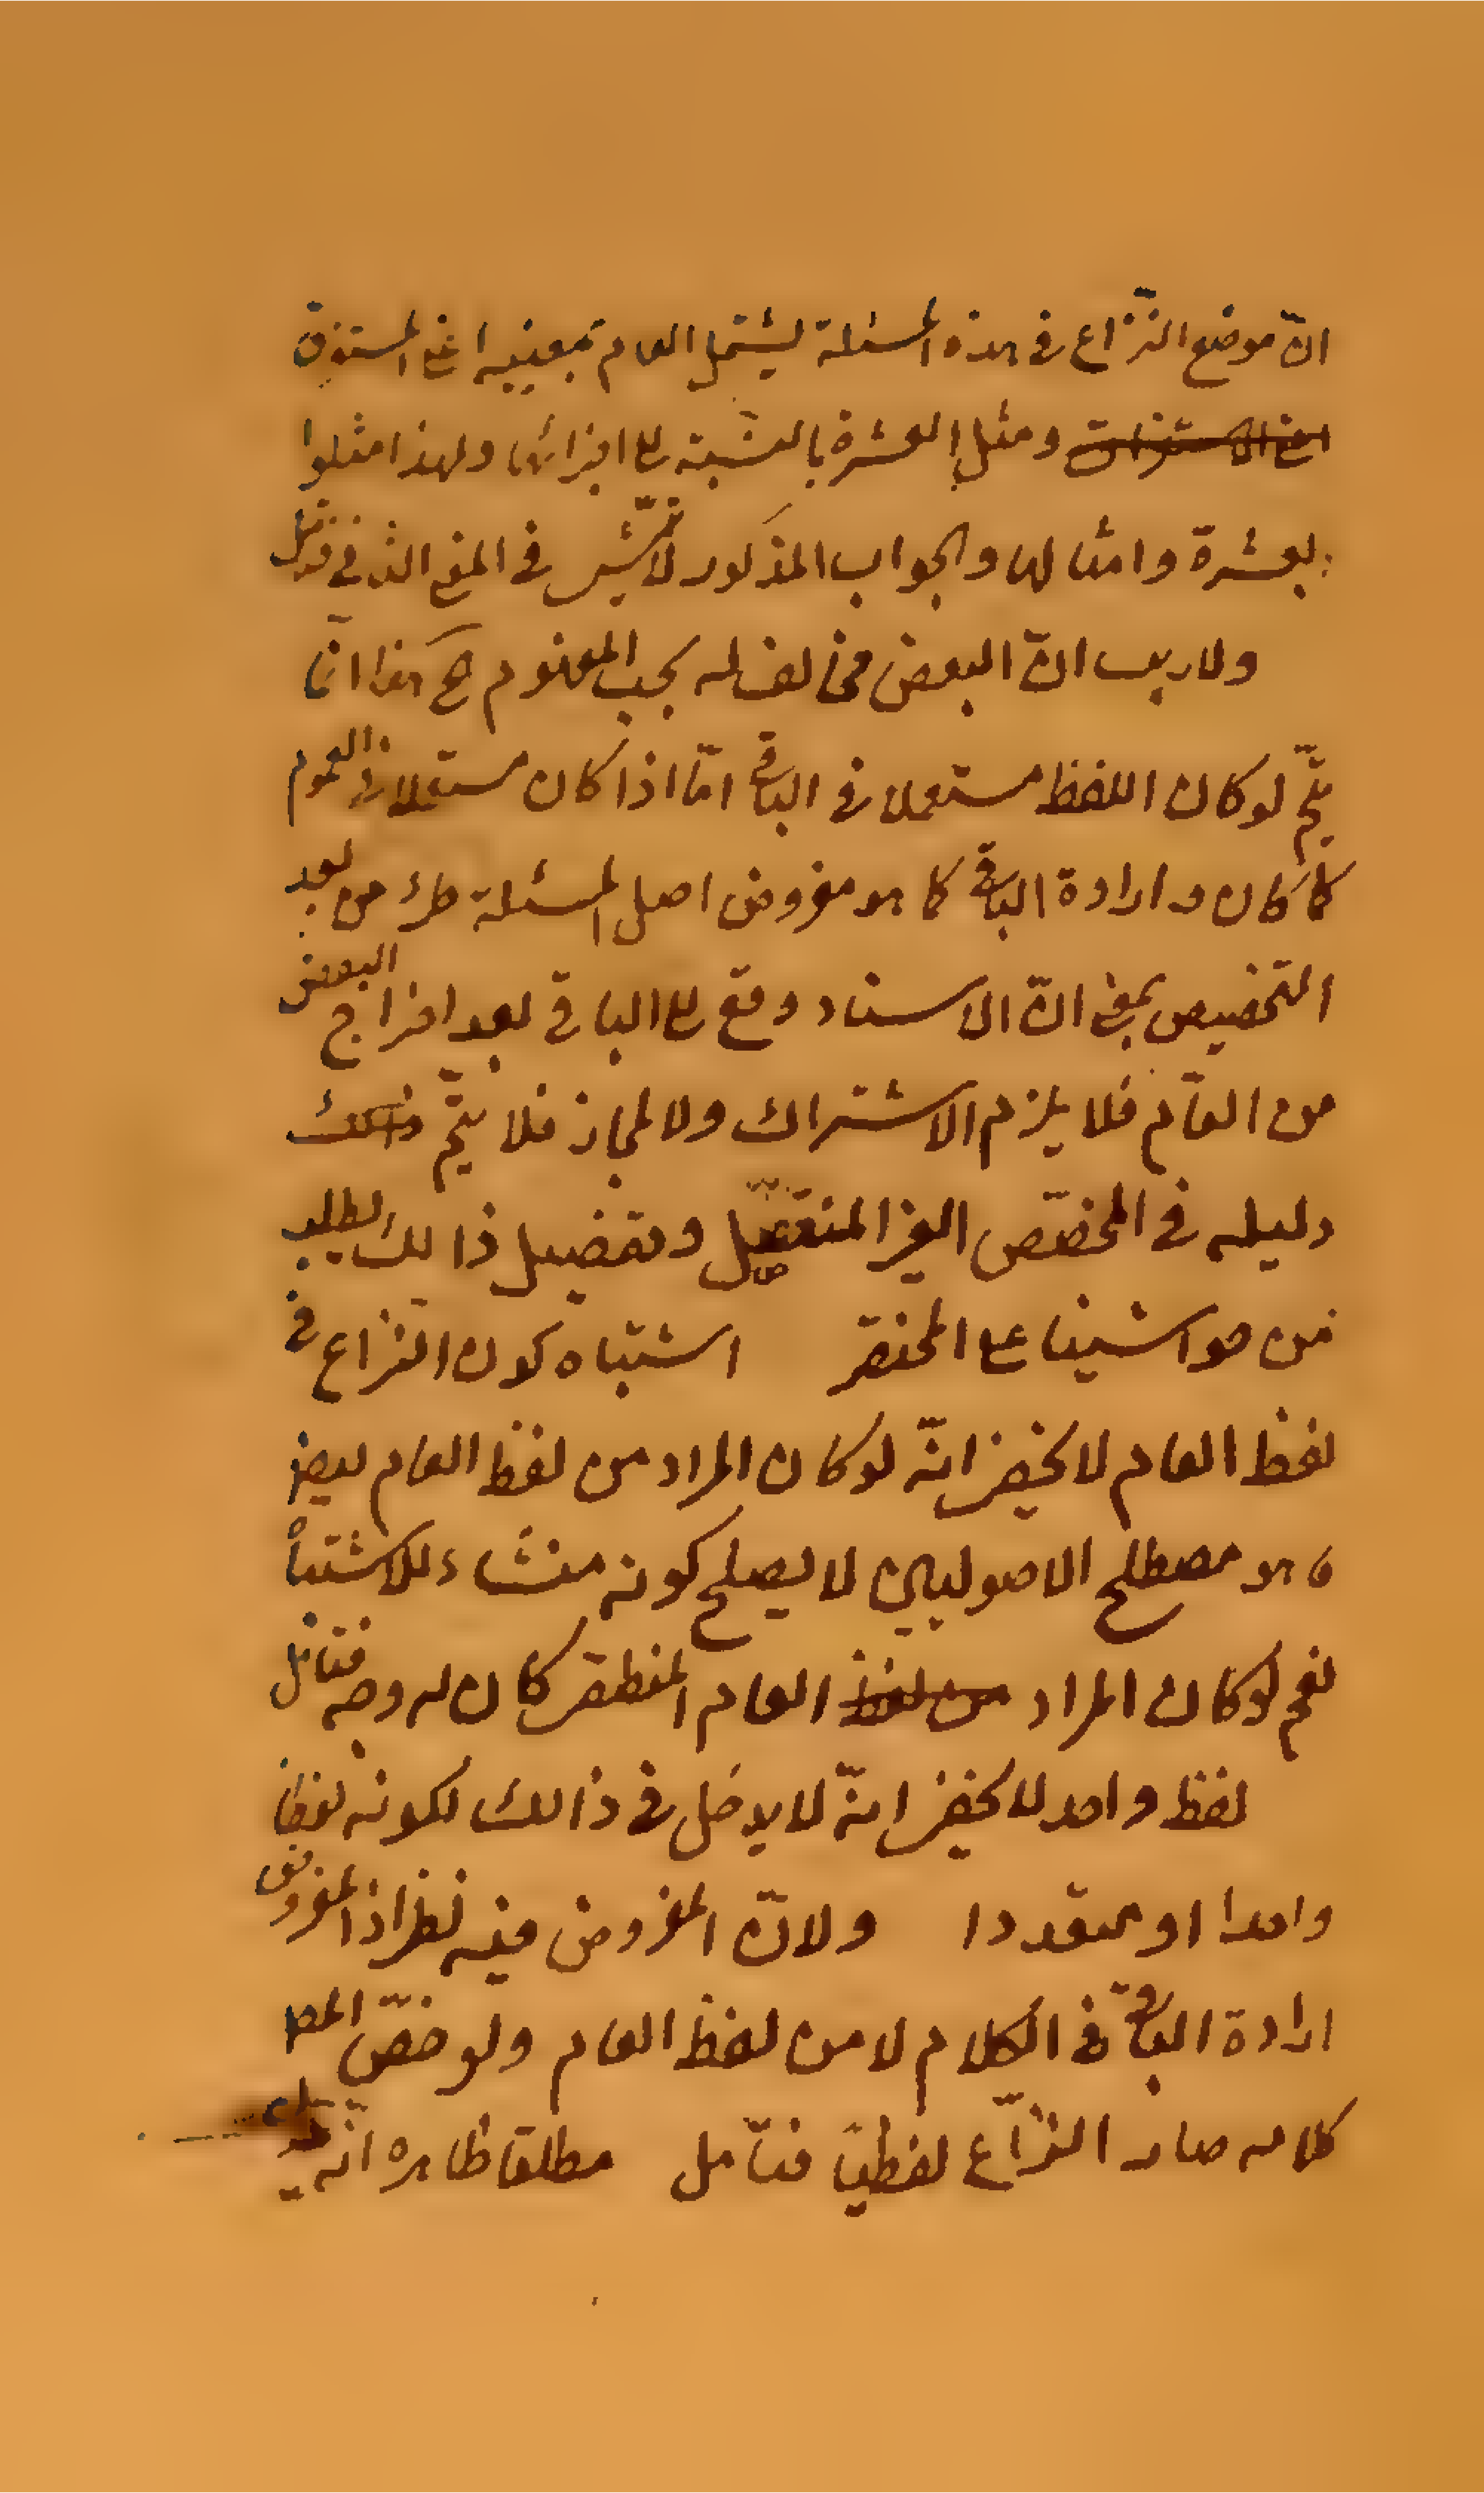 انّ موضع النزّاع فى هذه المسئلة يشتمل العام بمعنييه اعنى المستغرق
اعنى الاستغراق ومثل العشرة بالنسّبة على اجزائها ولهذا مثلوا
بعشرة وامثالها والجواب المذكور لا يتمشّى فى المعنى الثانى فتامّل
ولا ريب انّ البعض مخالف له بحسب المفهوم ح هذا انّما
يتمّ لو كان اللفظ مستعملا فى الباقى امّا اذا كان مستعملا فى العموم
كما كان وارادة الباقى كما هو مفروض اصل المسئلة طرء من بعد
التخصيص بمعنى انّ الاسناد وقع على الباقى بعد اخراج البعض
من العامّ فلا يلزم الاشتراك ولا المجاز فلا يتمّ ذلك
دليله فى المخصّص الغير المنفصل وتفصيل ذالك يطلب
من حواشينا على المختصر اشتباه كون النزاع فى
لفظ العام لا يخفى انّه لو كان المراد من لفظ العام
ما هو مصطلح الاصوليين لا يصلح كونه منشاء للاشتباه
نعم لو كان المراد من لفظ العام المنطقى كان له وجه فتامّل
لفظ واحد لا يخفى انّه لا يدخل فى ذالك لكونه لفظا
واحدا او متعددا ولانّ المفروض فيه نظر اذ المفروض
ارادة الباقى فى الكلام لا من لفظ العام ولو خصّ المصـ
كلامه صار النزّاع لفظيّا فتامّل مطلقا ظاهره انّه